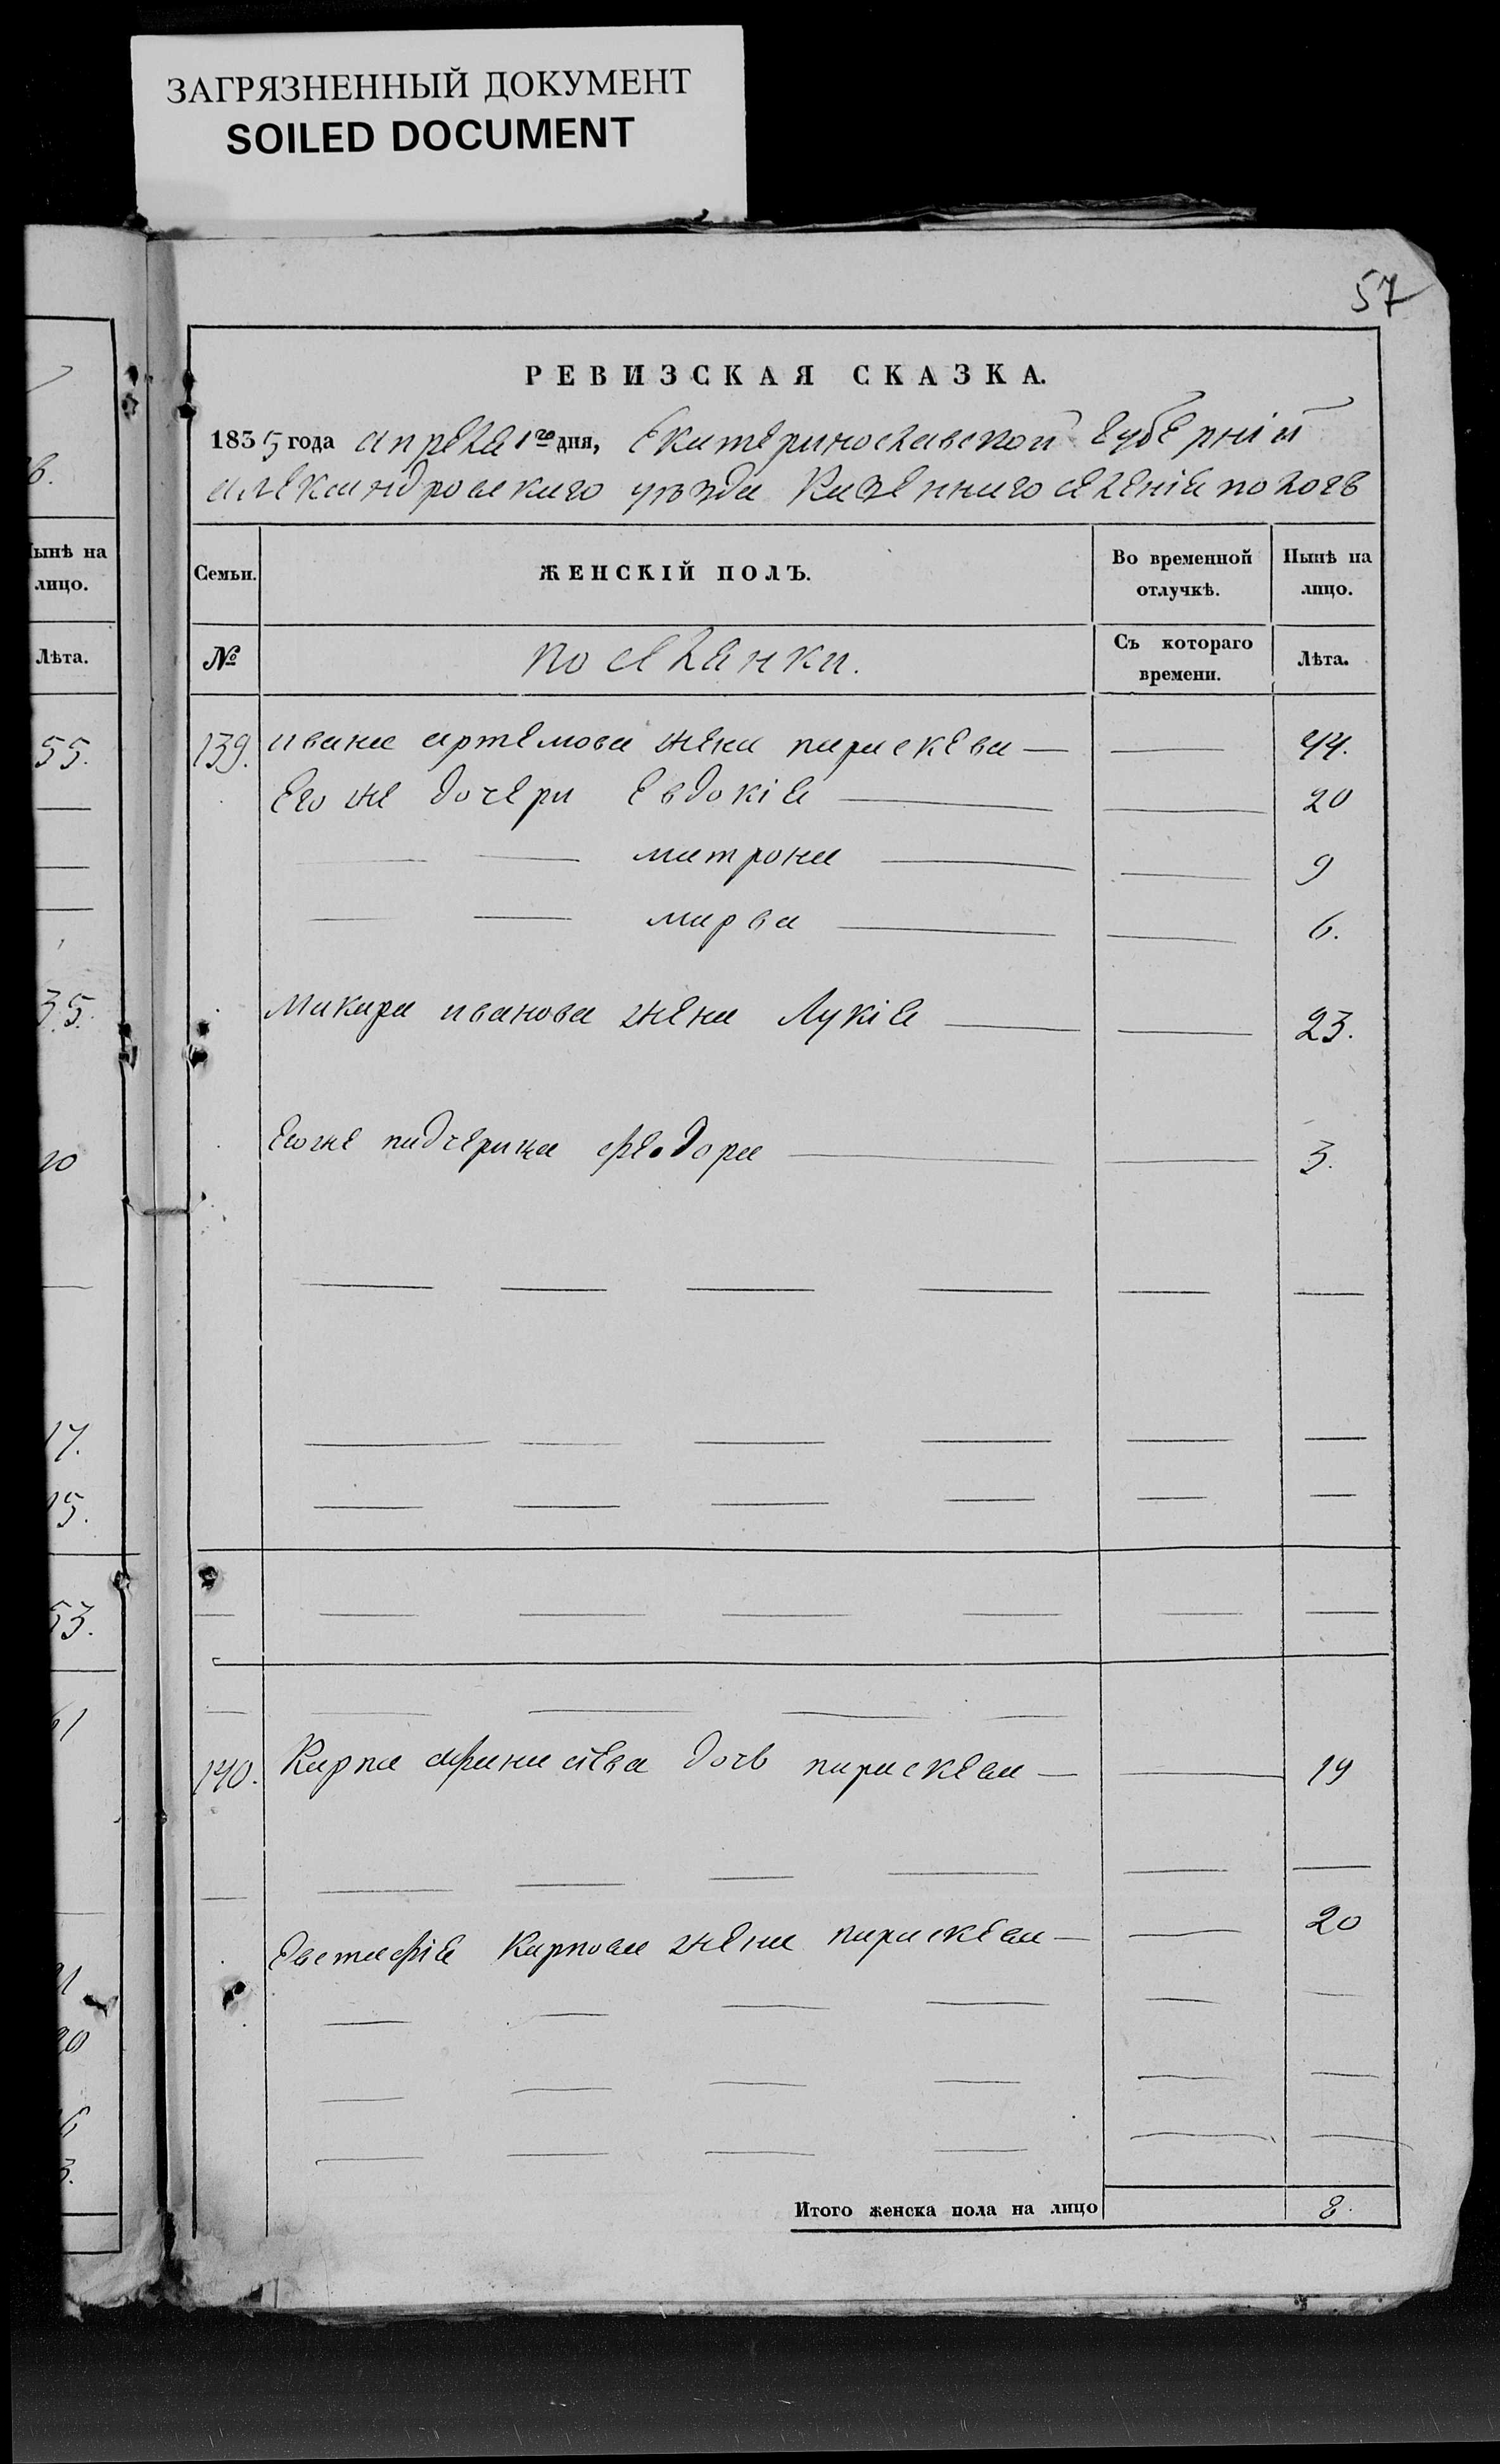 ЗАГРЯЗНЕННЫЙ ДОКУМЕНТ
SOILED DOCUMENT
57
РЕВИЗСКАЯ СКАЗКА.
1835 года апреля 1го дня, Екатеринославской губерніи
александровскаго уѣзда Казенного селенія пологъ
Семьи. ЖЕНСКІЙ ПОЛЪ. Во временной отлучкѣ. Нынѣ на лицо.
№ поселянки. Съ котораго времени. Лѣта.
139. ивана артемова жена параскева — — 44.
Его же дочери Евдокія — — 20
— — матрона — — 9
— — марва — — 6.
Макара иванова жена Лукія — — 23.
Его же падчерица феодора — — 3.
— — — — — —
— — — — — —
— — — — — —
— — — — — — —
— — — — —
140. Карпа афанасева дочь параскева — — 19
— — — — — — —
Евстафія Карпова жена параскева — — 20
— — — — — —
— — — — — —
— — — — — —
Итого женска пола на лицо 8.
Нынѣ на
лицо.
Лѣта.
55.
35.
20
17.
15.
53.